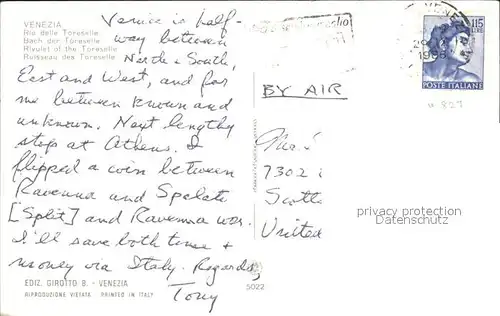 VENEZIA
Rio delle Toreselle
Bach der Toreselle
Rivulet of the Toreselle
Ruisseau des Toreselle
Venice is half-
way between
North & South,
East and West, and for
me between known and
unknown. Next lengthy
stop at Athens. I
flipped a coin between
Ravenna and Spalato
[Split] and Ravenna won.
I'll save both time &
money via Italy. Regards,
Tony
EDIZ. GIROTTO B. - VENEZIA
RIPRODUZIONE VIETATA PRINTED IN ITALY
5022
VENEZ
115
LIRE
POSTE ITALIANE
BY AIR
7302
Scotts
United
privacy protection
Datenschutz